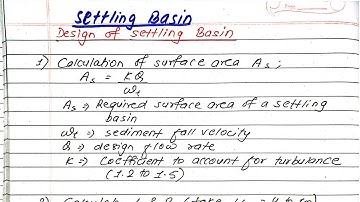 Settling Basin
Design of settling Basin
1) Calculation of surface area As;
As = KQ
ωt
As => Required surface area of a settling
basin
ωt => sediment fall velocity
Q => design flow rate
K => Coefficient to account for turbulance
(1.2 to 1.5)